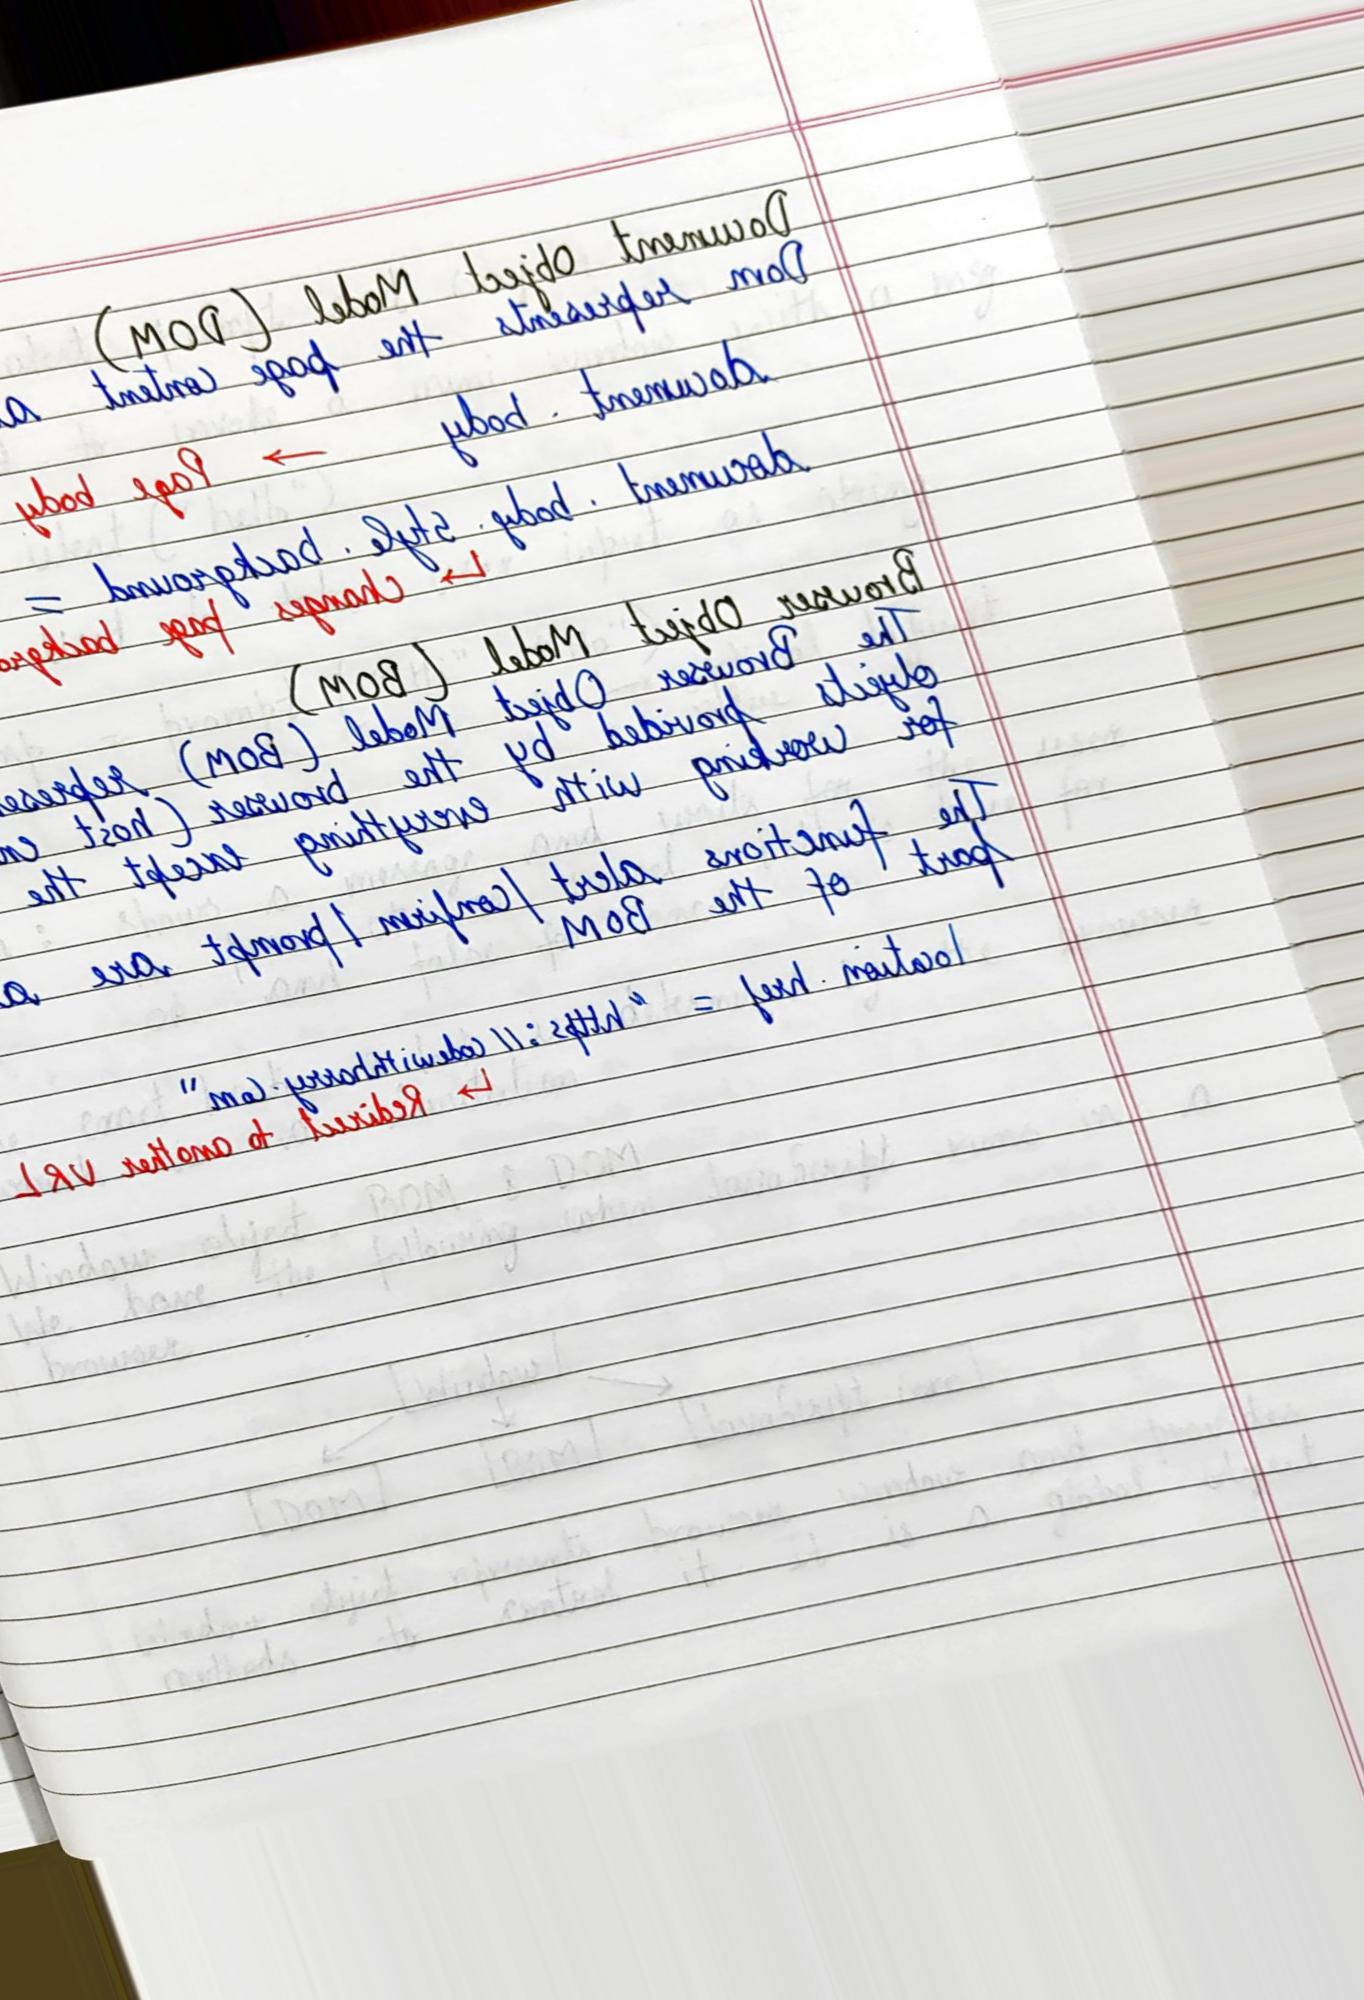 Document Object Model (DOM)
Dom represents the page content a
document . body → Page body
document . body . style . background =
↳ changes page backgro
Browser Object Model (BOM)
The Browser Object Model (BOM) represe
objects provided by the browser (host en
for working with everything except the
The functions alert / confirm / prompt are a
part of the BOM
location . href = "https://codewithharry.com"
↳ Redirect to another URL